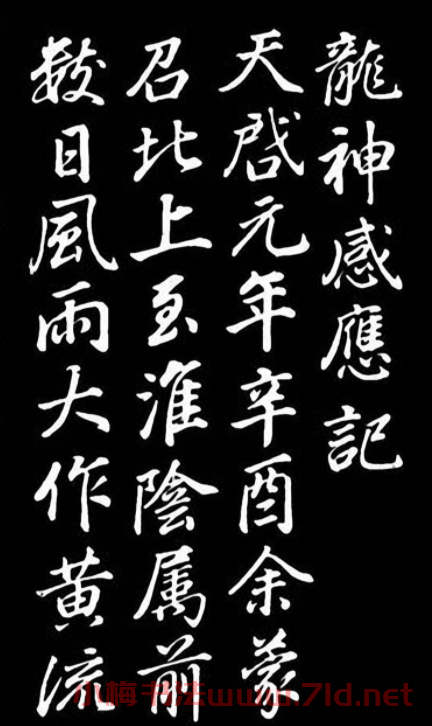 龍神感應記
天啟元年辛酉余蒙
召北上至淮陰属前
數日風雨大作黄流
小梅书法www.7ld.net